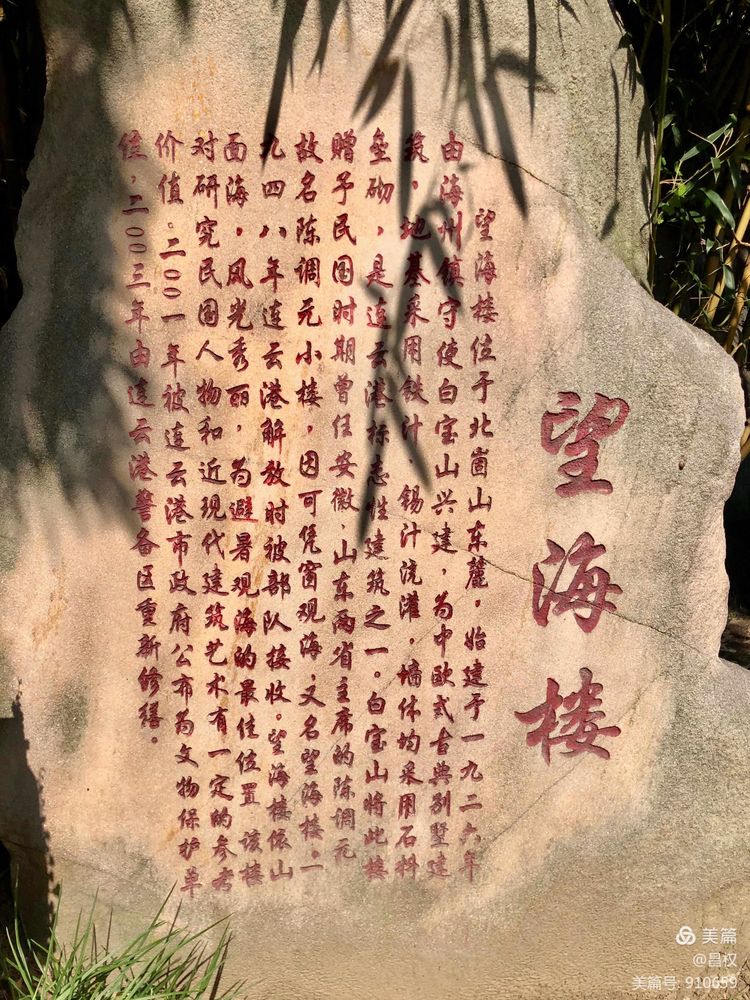 望海楼
望海楼位于北崮山东麓。始建于一九二六年
由海州镇守使白宝山兴建，为中欧式古典别墅建
筑，地基采用铁汁、锡汁浇灌，墙体均采用石料
垒砌，是连云港标志性建筑之一。白宝山将此楼
赠予民国时期曾任安徽、山东两省主席的陈调元
故名陈调元小楼，因可凭窗观海，又名望海楼。一
九四八年连云港解放时被部队接收。望海楼依山
面海，风光秀丽，为避暑观海的最佳位置该楼
对研究民国人物和近现代建筑艺术有一定的参考
价值。二00一年被连云港市政府公布为文物保护单
位，二00三年由连云港警备区重新修缮。
美篇
@昌权
美篇号: 910659